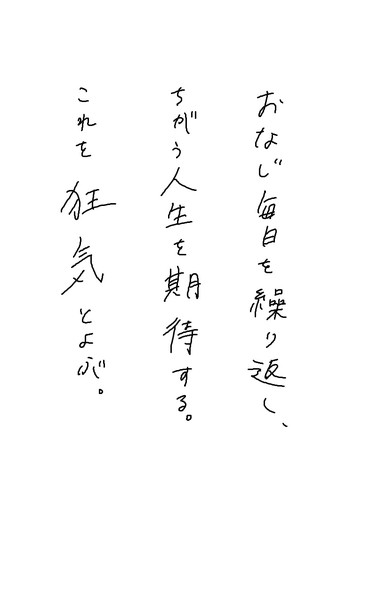 おなじ毎日を繰り返し、
ちがう人生を期待する。
これを狂気とよぶ。